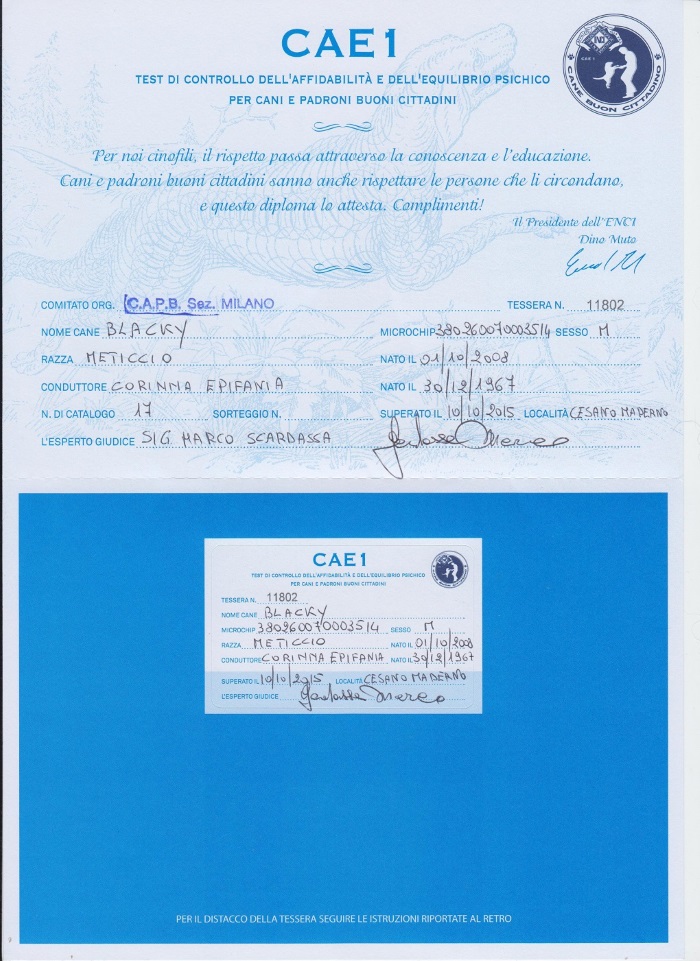 CAE1
TEST DI CONTROLLO DELL'AFFIDABILITÀ E DELL'EQUILIBRIO PSICHICO
PER CANI E PADRONI BUONI CITTADINI
CAE 1
CANE BUON CITTADINO
Per noi cinofili, il rispetto passa attraverso la conoscenza e l'educazione.
Cani e padroni buoni cittadini sanno anche rispettare le persone che li circondano,
e questo diploma lo attesta. Complimenti!
Il Presidente dell'ENCI
Dino Muto
COMITATO ORG. C.A.P.B. Sez. MILANO TESSERA N. 11802
NOME CANE BLACKY MICROCHIP 380260070003514 SESSO M
RAZZA METICCIO NATO IL 01/10/2008
CONDUTTORE CORINNA EPIFANIA NATO IL 30/12/1967
N. DI CATALOGO 17 SORTEGGIO N. SUPERATO IL 10/10/2015 LOCALITÀ CESANO MADERNO
L'ESPERTO GIUDICE SIG MARCO SCARDASSA
CAE1
TEST DI CONTROLLO DELL'AFFIDABILITÀ E DELL'EQUILIBRIO PSICHICO
PER CANI E PADRONI BUONI CITTADINI
TESSERA N. 11802
NOME CANE BLACKY
MICROCHIP 380260070003514 SESSO M
RAZZA METICCIO NATO IL 01/10/2008
CONDUTTORE CORINNA EPIFANIA NATO IL 30/12/1967
SUPERATO IL 10/10/2015 LOCALITÀ CESANO MADERNO
L'ESPERTO GIUDICE
PER IL DISTACCO DELLA TESSERA SEGUIRE LE ISTRUZIONI RIPORTATE AL RETRO